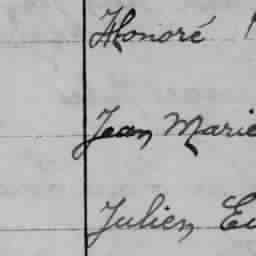 Honoré
Jean Marie
Julien